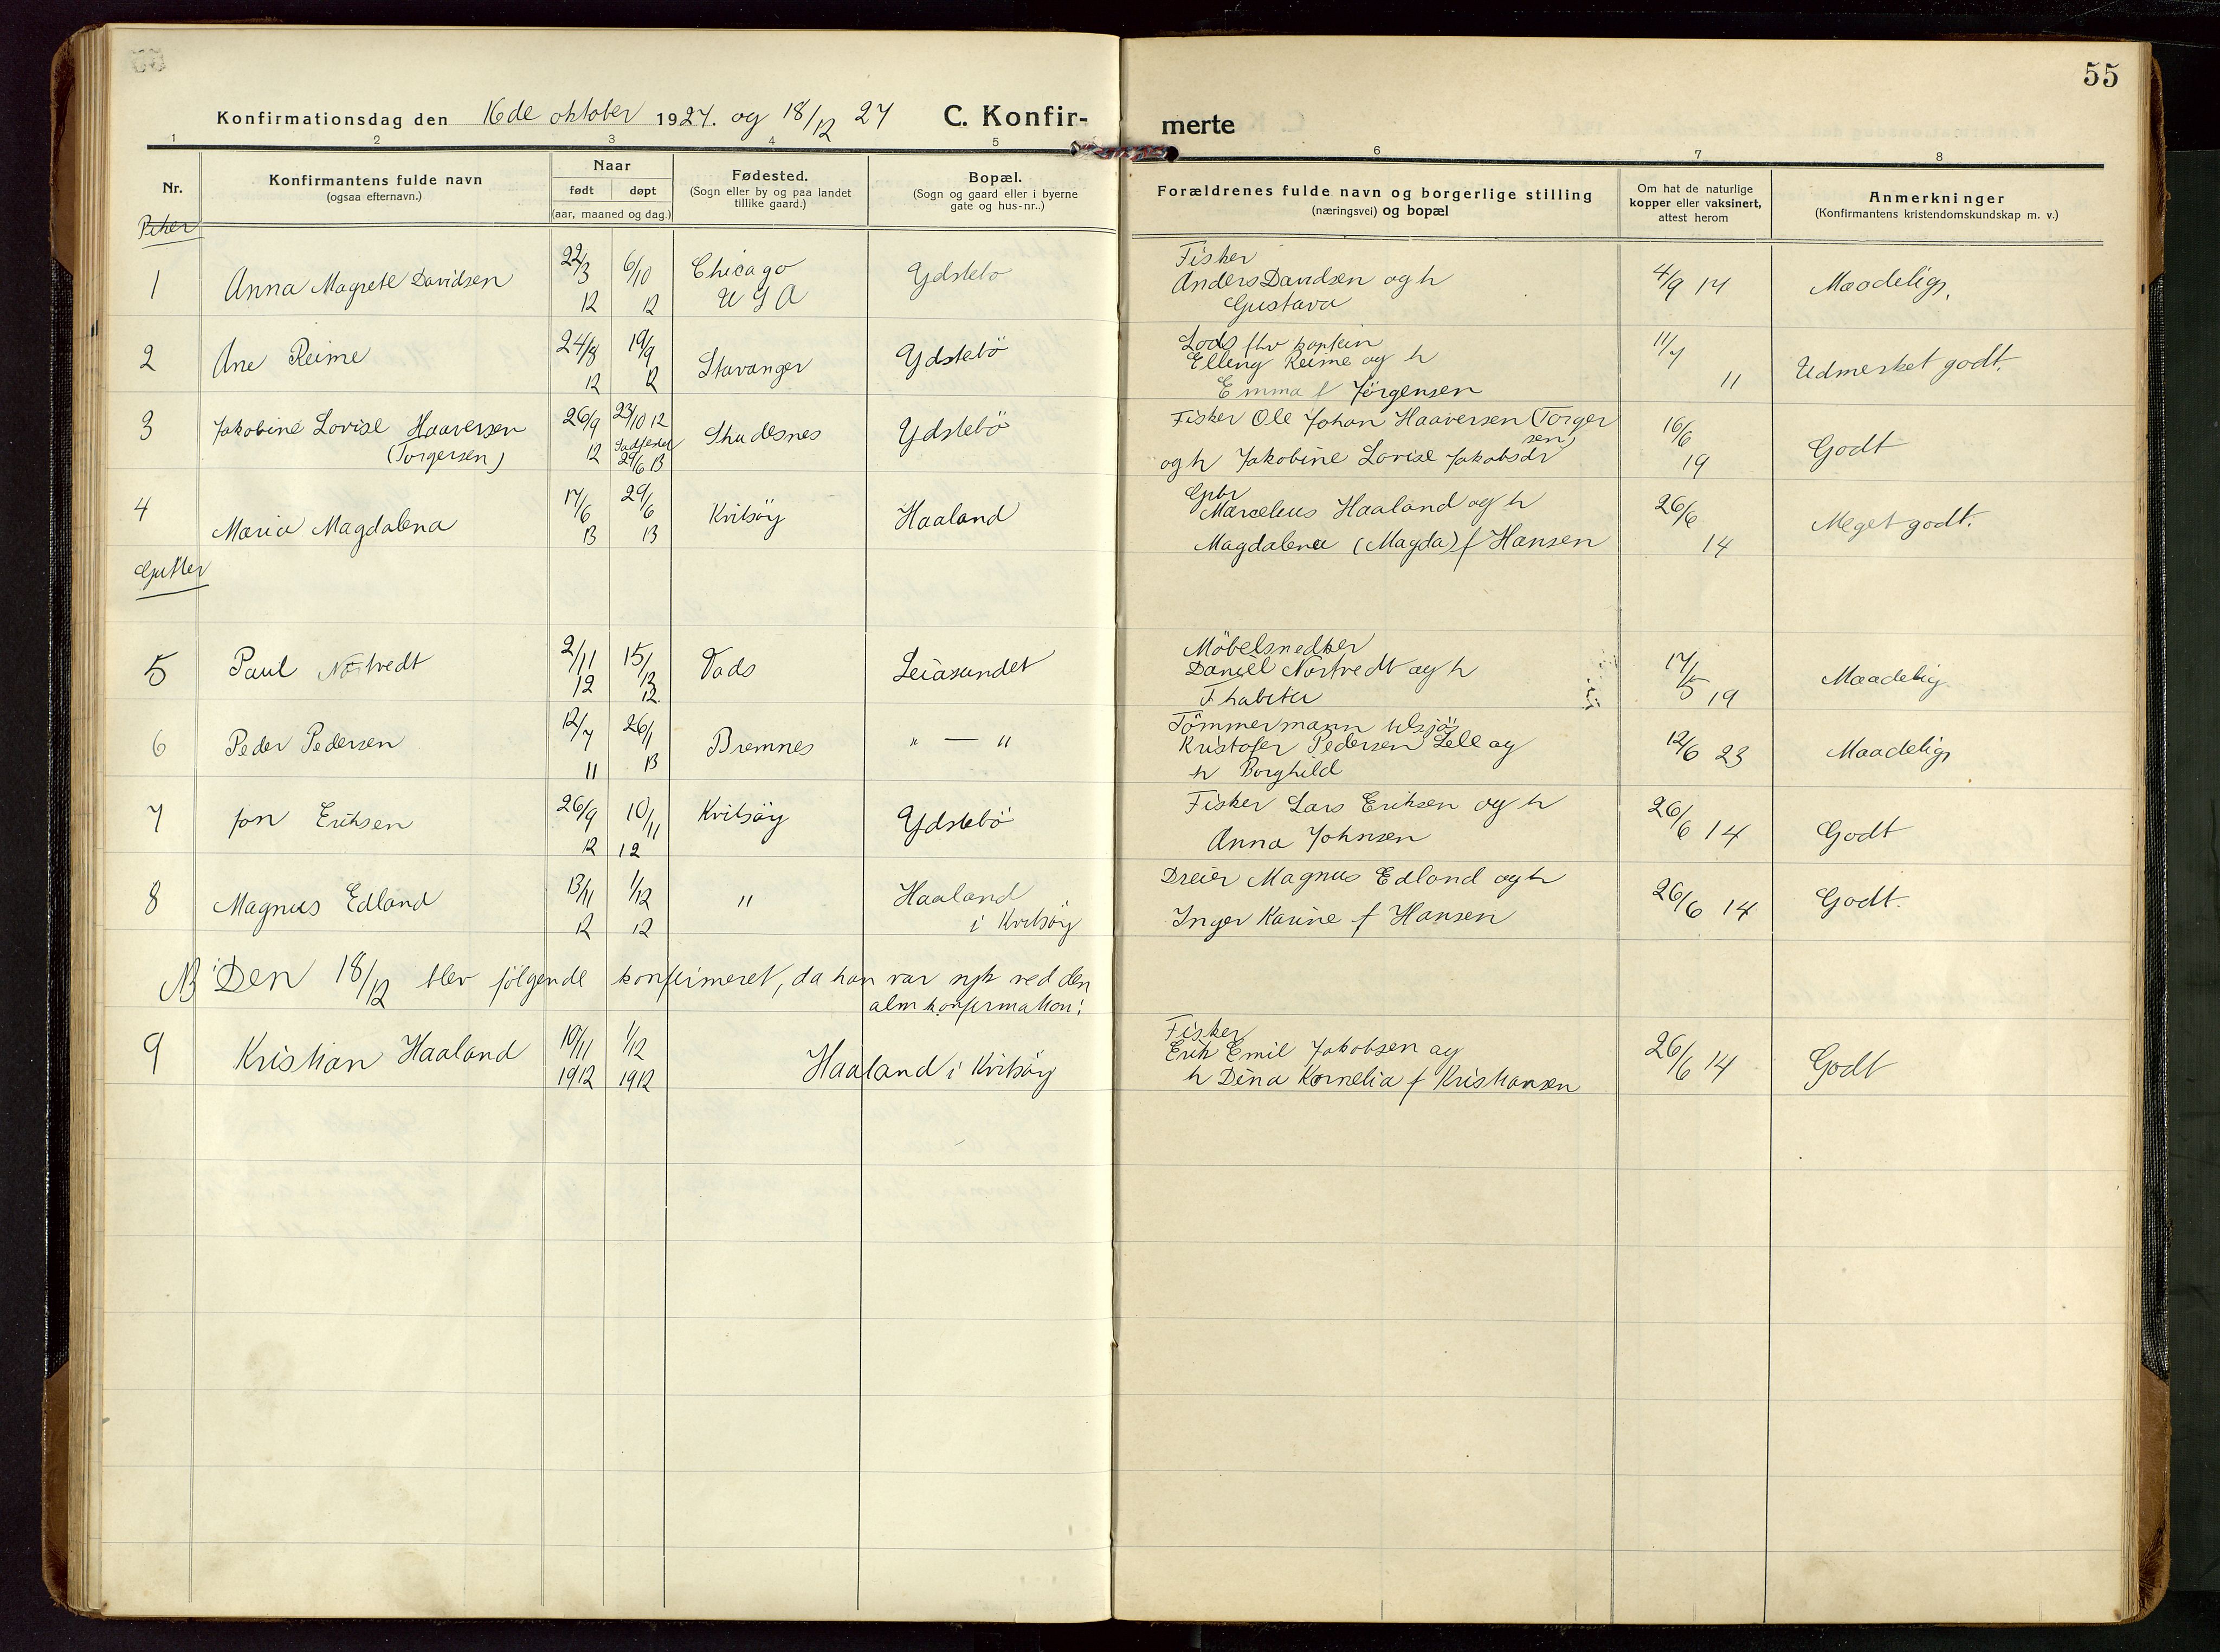 55
Konfirmationsdag den 16de oktober 1927. og 18/12 27 C. Konfir-
merte
1 2 3 4 5 6 7 8
Nr.
Konfirmantens fulde navn
(ogsaa efternavn.)
Naar
født døpt
(aar, maaned og dag.)
Fødested.
(Sogn eller by og paa landet
tillike gaard.)
Bopæl.
(Sogn og gaard eller i byerne
gate og hus-nr..)
Forældrenes fulde navn og borgerlige stilling
(næringsvei) og bopæl
Om hat de naturlige
kopper eller vaksinert,
attest herom
Anmerkninger
(Konfirmantens kristendomskundskap m. v.)
Piker
1 Anna Magrete Davidsen 22/3 12 6/10 12 Chicago Ydstebø
U S A
Fisker
Anders Davidsen og h
Gustava
4/9 14 Maadelig,
2 Ane Reime 24/8 12 19/9 12 Stavanger Ydstebö
Lods fhv kaptein
Elling Reime og h
Emma f Jörgensen
11/7 11 Udmerket godt.
3 Jakobine Lovise Haaversen 26/9 12 23/10 12 Skudesnes Ydstebö
(Torgersen) 29/6 13
Fisker Ole Johan Haaversen (Torger
sen)
og h Jakobine Lovise Jakobsdr
16/6 19 Godt
4 Maria Magdalena 17/6 13 29/6 13 Kvitsöy Haaland
Gbr
Marcelius Haaland og h
Magdalena (Magda) f Hansen
26/6 14 Meget godt.
Gutter
5 Paul Nortvedt 2/11 12 15/12 12 Vads Leiasundet
Möbelsnedker
Daniel Nortvedt og h
17/5 19 Maadelig
6 Peder Pedersen 12/7 11 26/1 13 Bremnes " — "
Tömmermann
Kristofer Pedersen Lele og
h Borghild
12/6 23 Maadelig,
7 Jon Eriksen 26/9 12 10/11 12 Kvitsöy Ydstebö
Fisker Lars Eriksen og h
Anna Johnsen
26/6 14 Godt
8 Magnus Edland 13/11 12 1/12 12 " Haaland
i Kvitsöy
Dreier Magnus Edland og h
Inger Karine f Hansen
26/6 14 Godt.
NB Den 18/12 blev fölgende konfirmeret, da han var syk ved den
alm konfirmation:
9 Kristian Haaland 10/11 1912 1/12 1912 Haaland i Kvitsöy
Fisker
Erik Emil Jakobsen og
h Dina Kornelia f Kristiansen
26/6 14 Godt